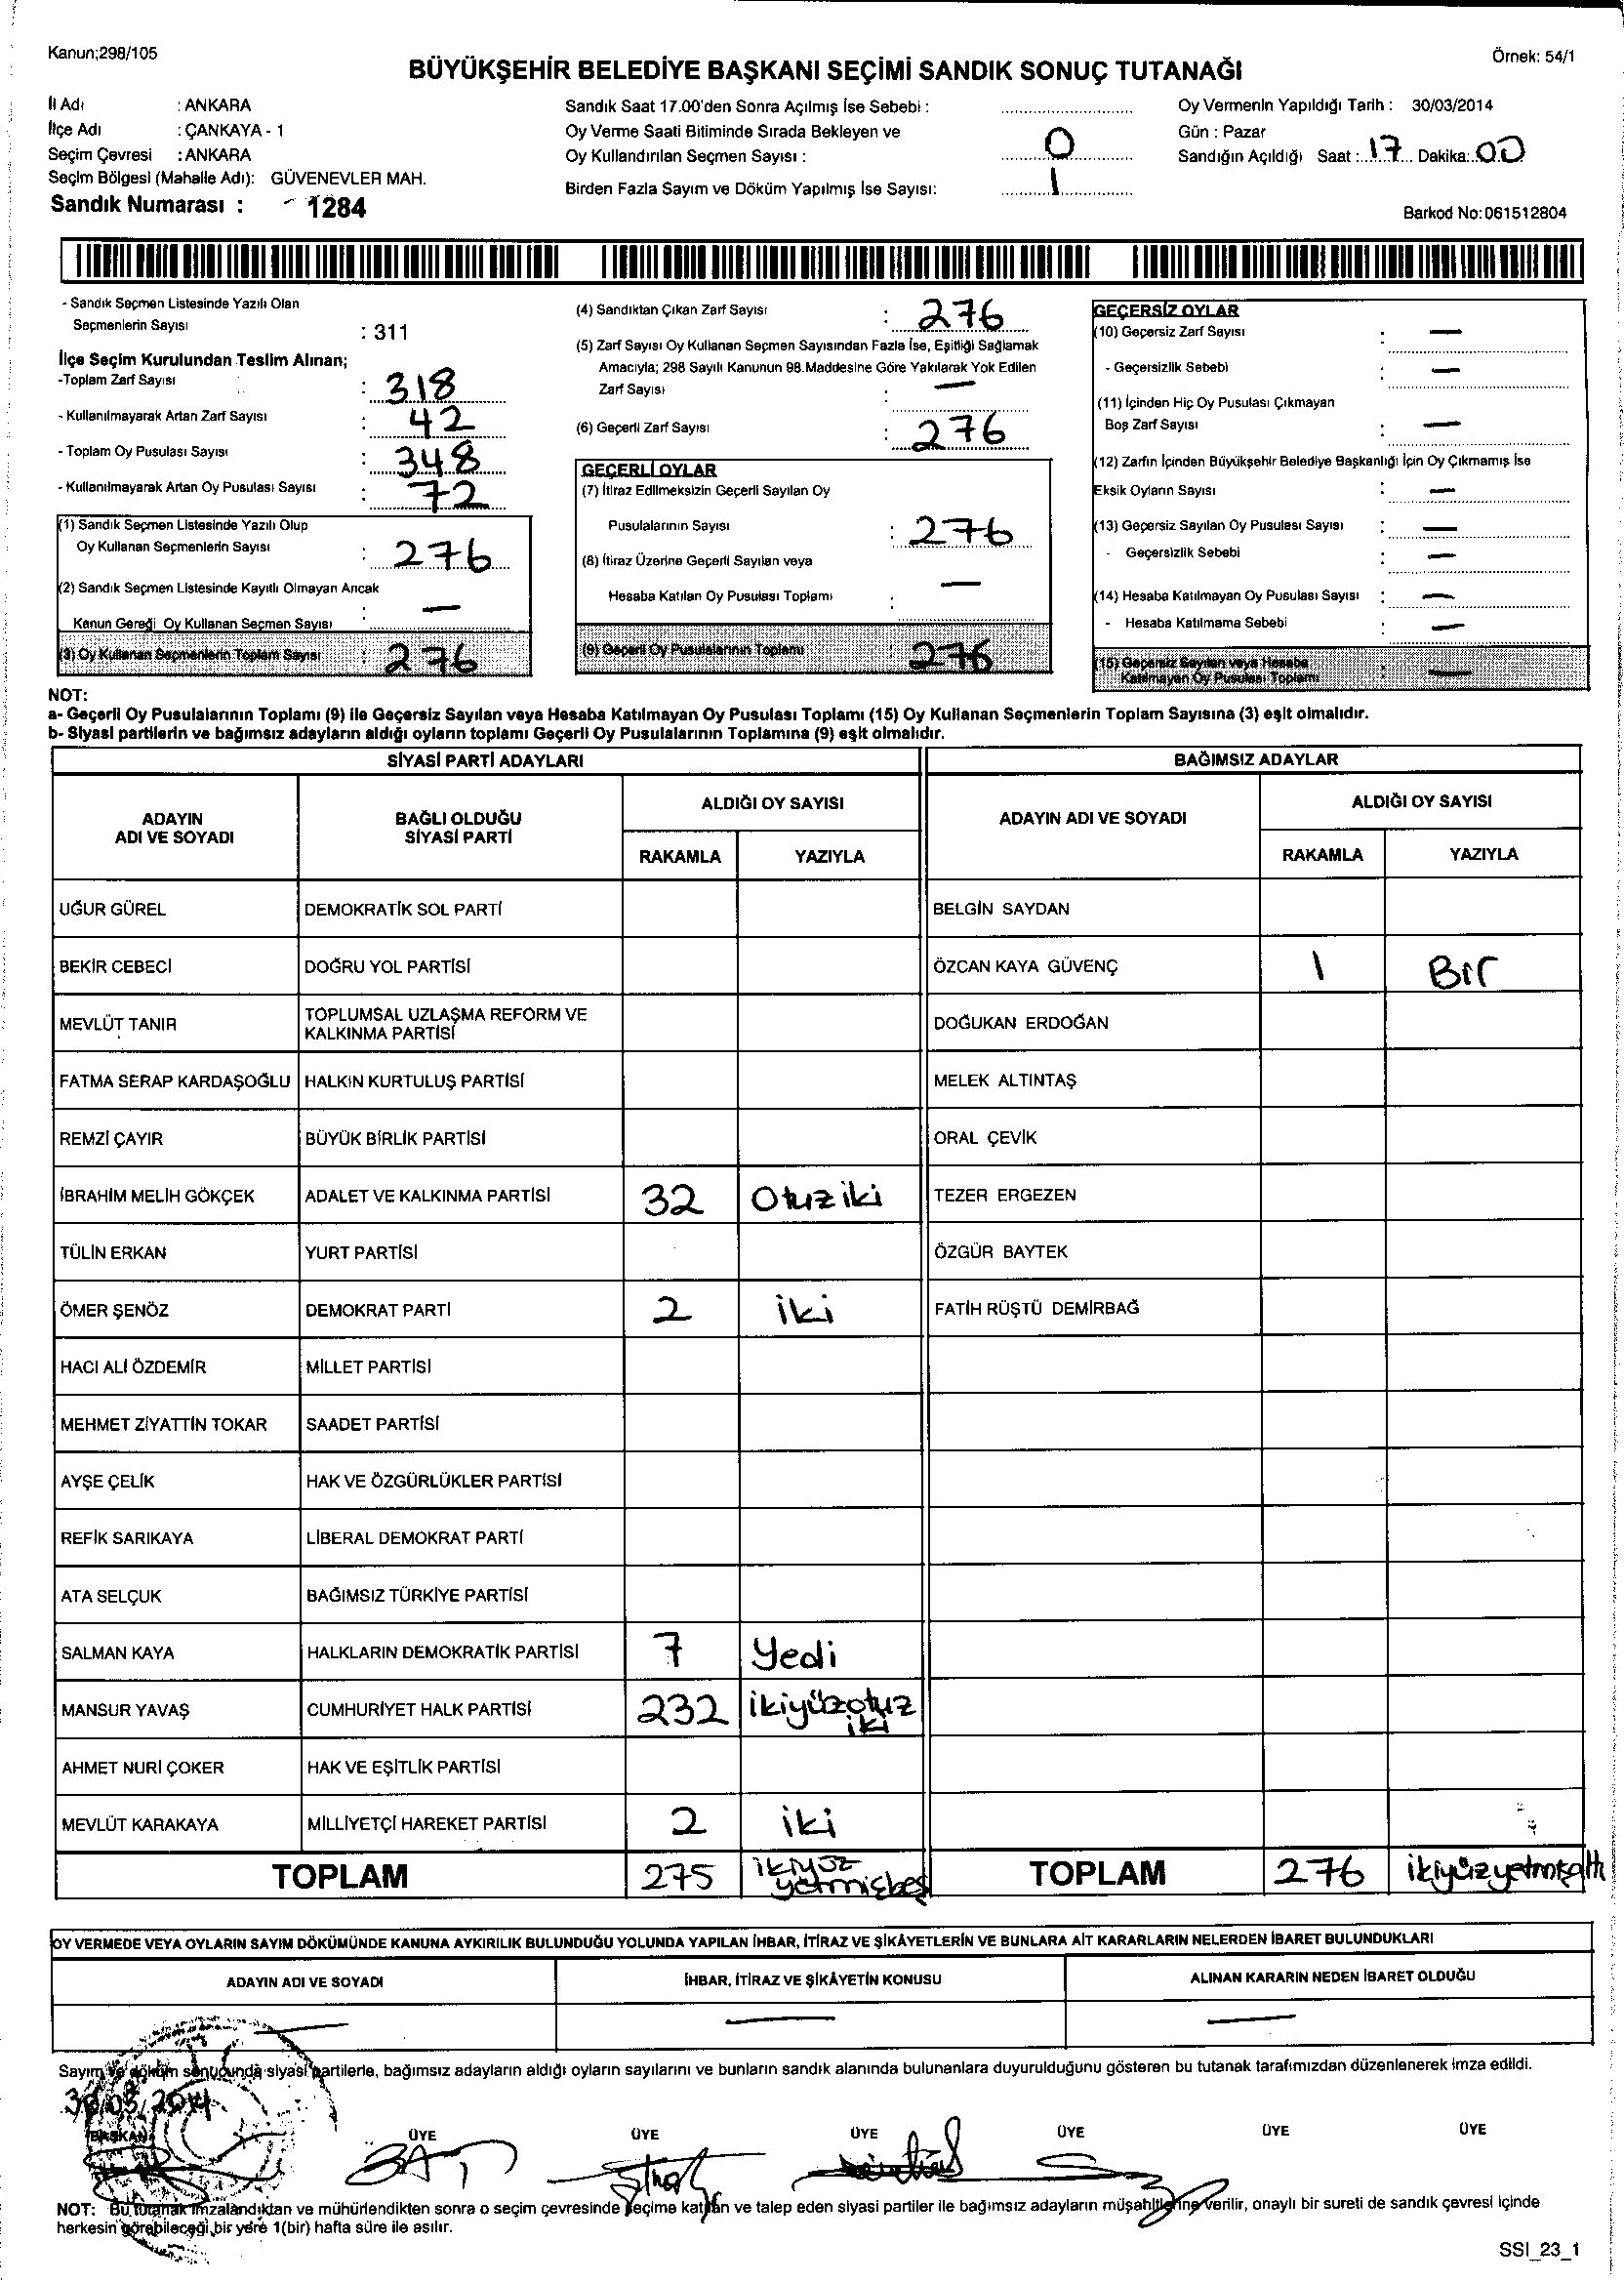 Kanun;298/105
Örnek: 54/1
BÜYÜKŞEHİR BELEDİYE BAŞKANI SEÇİMİ SANDIK SONUÇ TUTANAĞI
İl Adı : ANKARA
İlçe Adı : ÇANKAYA - 1
Seçim Çevresi : ANKARA
Seçim Bölgesi (Mahalle Adı): GÜVENEVLER MAH.
Sandık Numarası : 1284
Sandık Saat 17.00'den Sonra Açılmış İse Sebebi :
Oy Verme Saati Bitiminde Sırada Bekleyen ve
Oy Kullandırılan Seçmen Sayısı : 0
Birden Fazla Sayım ve Döküm Yapılmış İse Sayısı: 1
Oy Vermenin Yapıldığı Tarih : 30/03/2014
Gün : Pazar
Sandığın Açıldığı Saat : 17 Dakika: 00
Barkod No:061512804
- Sandık Seçmen Listesinde Yazılı Olan
Seçmenlerin Sayısı : 311
İlçe Seçim Kurulundan Teslim Alınan;
-Toplam Zarf Sayısı : 318
- Kullanılmayarak Artan Zarf Sayısı : 42
- Toplam Oy Pusulası Sayısı : 348
- Kullanılmayarak Artan Oy Pusulası Sayısı : 72
(1) Sandık Seçmen Listesinde Yazılı Olup
Oy Kullanan Seçmenlerin Sayısı : 276
(2) Sandık Seçmen Listesinde Kayıtlı Olmayan Ancak
Kanun Gereği Oy Kullanan Seçmen Sayısı : —
(3) Oy Kullanan Seçmenlerin Toplam Sayısı : 276
(4) Sandıktan Çıkan Zarf Sayısı : 276
(5) Zarf Sayısı Oy Kullanan Seçmen Sayısından Fazla İse, Eşitliği Sağlamak
Amacıyla; 298 Sayılı Kanunun 98.Maddesine Göre Yakılarak Yok Edilen
Zarf Sayısı : —
(6) Geçerli Zarf Sayısı : 276
GEÇERLİ OYLAR
(7) İtiraz Edilmeksizin Geçerli Sayılan Oy
Pusulalarının Sayısı : 276
(8) İtiraz Üzerine Geçerli Sayılan veya
Hesaba Katılan Oy Pusulası Toplamı : —
(9) Geçerli Oy Pusulalarının Toplamı : 276
GEÇERSİZ OYLAR
(10) Geçersiz Zarf Sayısı : —
- Geçersizlik Sebebi : —
(11) İçinden Hiç Oy Pusulası Çıkmayan
Boş Zarf Sayısı : —
(12) Zarfın İçinden Büyükşehir Belediye Başkanlığı İçin Oy Çıkmamış İse
Eksik Oyların Sayısı : —
(13) Geçersiz Sayılan Oy Pusulası Sayısı : —
- Geçersizlik Sebebi : —
(14) Hesaba Katılmayan Oy Pusulası Sayısı : —
- Hesaba Katılmama Sebebi : —
(15) Geçersiz Sayılan veya Hesaba
Katılmayan Oy Pusulası Toplamı : —
NOT:
a- Geçerli Oy Pusulalarının Toplamı (9) ile Geçersiz Sayılan veya Hesaba Katılmayan Oy Pusulası Toplamı (15) Oy Kullanan Seçmenlerin Toplam Sayısına (3) eşit olmalıdır.
b- Siyasi partilerin ve bağımsız adayların aldığı oyların toplamı Geçerli Oy Pusulalarının Toplamına (9) eşit olmalıdır.
SİYASİ PARTİ ADAYLARI BAĞIMSIZ ADAYLAR
ADAYIN ADI VE SOYADI BAĞLI OLDUĞU SİYASİ PARTİ ALDIĞI OY SAYISI ADAYIN ADI VE SOYADI ALDIĞI OY SAYISI
RAKAMLA YAZIYLA RAKAMLA YAZIYLA
UĞUR GÜREL DEMOKRATİK SOL PARTİ BELGİN SAYDAN
BEKİR CEBECİ DOĞRU YOL PARTİSİ ÖZCAN KAYA GÜVENÇ 1 Bir
MEVLÜT TANIR TOPLUMSAL UZLAŞMA REFORM VE KALKINMA PARTİSİ DOĞUKAN ERDOĞAN
FATMA SERAP KARDAŞOĞLU HALKIN KURTULUŞ PARTİSİ MELEK ALTINTAŞ
REMZİ ÇAYIR BÜYÜK BİRLİK PARTİSİ ORAL ÇEVİK
İBRAHİM MELİH GÖKÇEK ADALET VE KALKINMA PARTİSİ 32 Otuz iki TEZER ERGEZEN
TÜLİN ERKAN YURT PARTİSİ ÖZGÜR BAYTEK
ÖMER ŞENÖZ DEMOKRAT PARTİ 2 iki FATİH RÜŞTÜ DEMİRBAĞ
HACI ALİ ÖZDEMİR MİLLET PARTİSİ
MEHMET ZİYATTİN TOKAR SAADET PARTİSİ
AYŞE ÇELİK HAK VE ÖZGÜRLÜKLER PARTİSİ
REFİK SARIKAYA LİBERAL DEMOKRAT PARTİ
ATA SELÇUK BAĞIMSIZ TÜRKİYE PARTİSİ
SALMAN KAYA HALKLARIN DEMOKRATİK PARTİSİ 7 Yedi
MANSUR YAVAŞ CUMHURİYET HALK PARTİSİ 232 ikiyüzotuz iki
AHMET NURİ ÇOKER HAK VE EŞİTLİK PARTİSİ
MEVLÜT KARAKAYA MİLLİYETÇİ HAREKET PARTİSİ 2 iki
TOPLAM 275 ikiyüz yetmişbeş TOPLAM 276 ikiyüzyetmişaltı
OY VERMEDE VEYA OYLARIN SAYIM DÖKÜMÜNDE KANUNA AYKIRILIK BULUNDUĞU YOLUNDA YAPILAN İHBAR, İTİRAZ VE ŞİKÂYETLERİN VE BUNLARA AİT KARARLARIN NELERDEN İBARET BULUNDUKLARI
ADAYIN ADI VE SOYADI İHBAR, İTİRAZ VE ŞİKÂYETİN KONUSU ALINAN KARARIN NEDEN İBARET OLDUĞU
— — —
Sayım ve döküm sonucunda siyasi partilerle, bağımsız adayların aldığı oyların sayılarını ve bunların sandık alanında bulunanlara duyurulduğunu gösteren bu tutanak tarafımızdan düzenlenerek imza edildi.
30/03/2014
BAŞKAN ÜYE ÜYE ÜYE ÜYE ÜYE ÜYE
NOT: Bu tutanak imzalandıktan ve mühürlendikten sonra o seçim çevresinde seçime katılan ve talep eden siyasi partiler ile bağımsız adayların müşahitlerine verilir, onaylı bir sureti de sandık çevresi içinde
herkesin görebileceği bir yere 1(bir) hafta süre ile asılır.
SSI_23_1